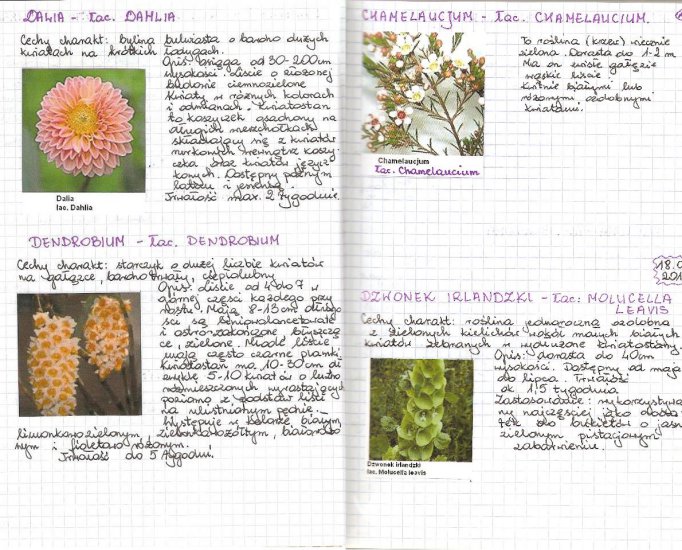 DALIA - łac. DAHLIA
Cechy charakt: bylina bulwiasta o bardzo dużych
kwiatach na krótkich łodygach.
Opis: osiąga od 30-200cm
wysokości. Liście o złożonej
budowie ciemnozielone.
Kwiaty w różnych kolorach
i odmianach. Kwiatostan
to koszyczek osadzony na
długich szypułkach
składający się z kwiatów
rurkowych wewnątrz koszy-
czka oraz kwiatów języcz-
kowych. Dostępny późnym
latem i jesienią.
Trwałość max. 2 tygodnie.
Dalia
łac. Dahlia
DENDROBIUM - łac. DENDROBIUM
Cechy charakt: storczyk o dużej liczbie kwiatów
na gałązce, bardzo trwały, ciepłolubny
Opis: liście od 4 do 7 w
górnej części każdego przy
rostu. Mają 8-13cm długo
ści są
i ostro zakończone błyszczą
ce, zielone. Młode liście
mają często czarne plamki.
Kwiatostan ma 10-30cm di
zwykle 5-10 kwiatów o luźno
rozmieszczonych wyrastających
poziomo z podstaw liści
na ulistnionym pędzie.
Występuje w kolorze białym,
limonkowozielonym, zielonkawożółtym, białoróżo
wym i fioletowo różowym.
Trwałość do 5 tygodni.
CHAMELAUCJUM - łac. CHAMELAUCIUM.
To roślina (krzew) wiecznie
zielona. Dorasta do 1-2 m
Ma on zwisłe gałęzie
wąskie liście.
Kwitnie białymi lub
różowymi, ozdobnymi
kwiatami.
Chamelaucjum
łac. Chamelaucium
18.0
201
DZWONEK IRLANDZKI - łac: MOLUCELLA
LEAVIS
Cechy charakt: roślina jednoroczna ozdobna
z zielonych kielichów wokół małych białych
kwiatów zebranych w wydłużone kwiatostany.
Opis: dorasta do 40cm
wysokości. Dostępny od maja
do lipca. Trwałość
ok 1,5 tygodnia.
Zastosowanie: wykorzystywa
ny najczęściej jako doda
tek do bukietów o jasno
zielonym, pistacjowym
zabarwieniu.
Dzwonek irlandzki
łac. Molucella leavis